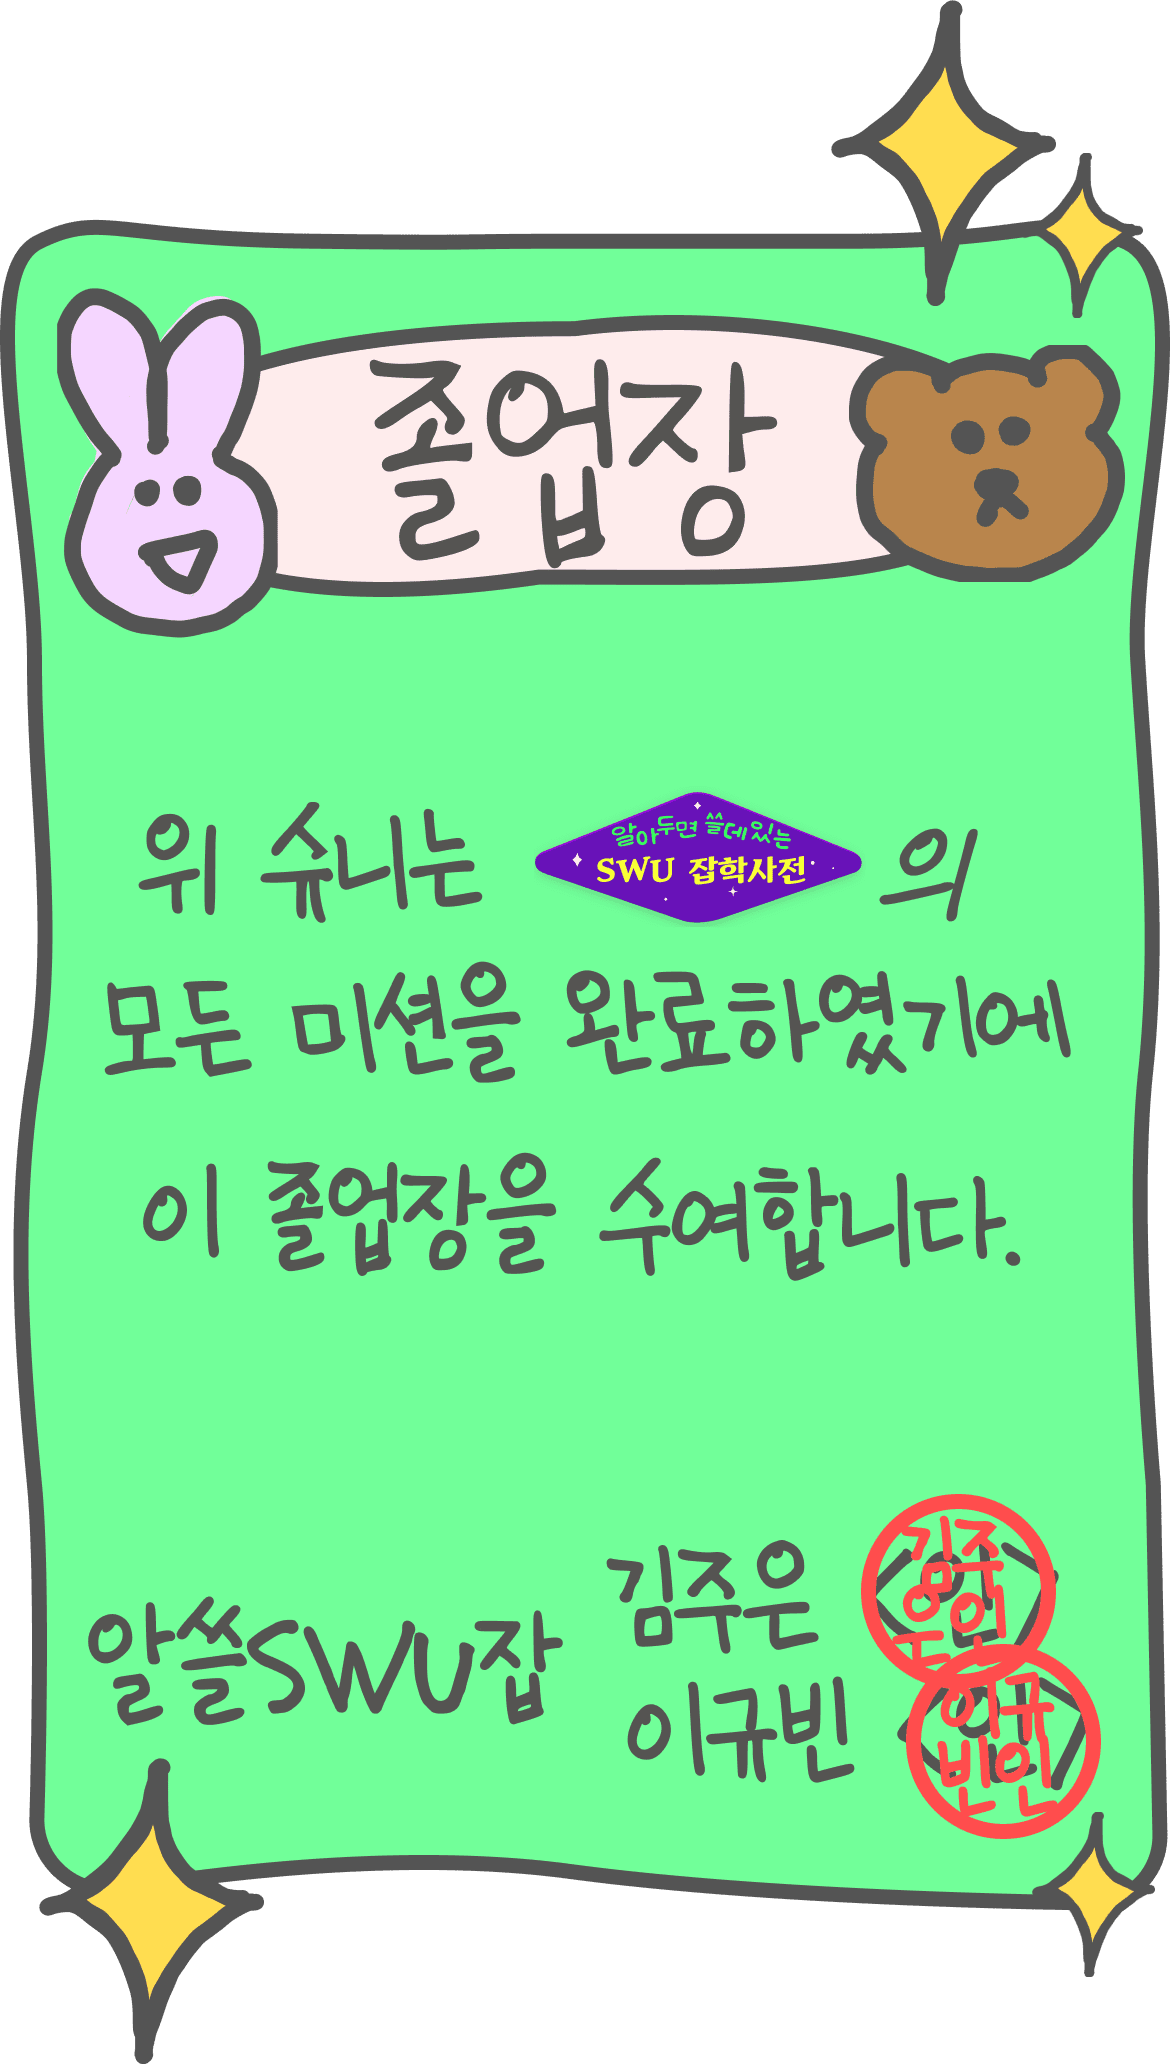 졸업장
위 슈니는 알아두면 쓸데있는 SWU 잡학사전 의
모든 미션을 완료하였기에
이 졸업장을 수여합니다.
알쓸SWU잡
김주은 (인)
김주은인
이규빈 (인)
이규빈인